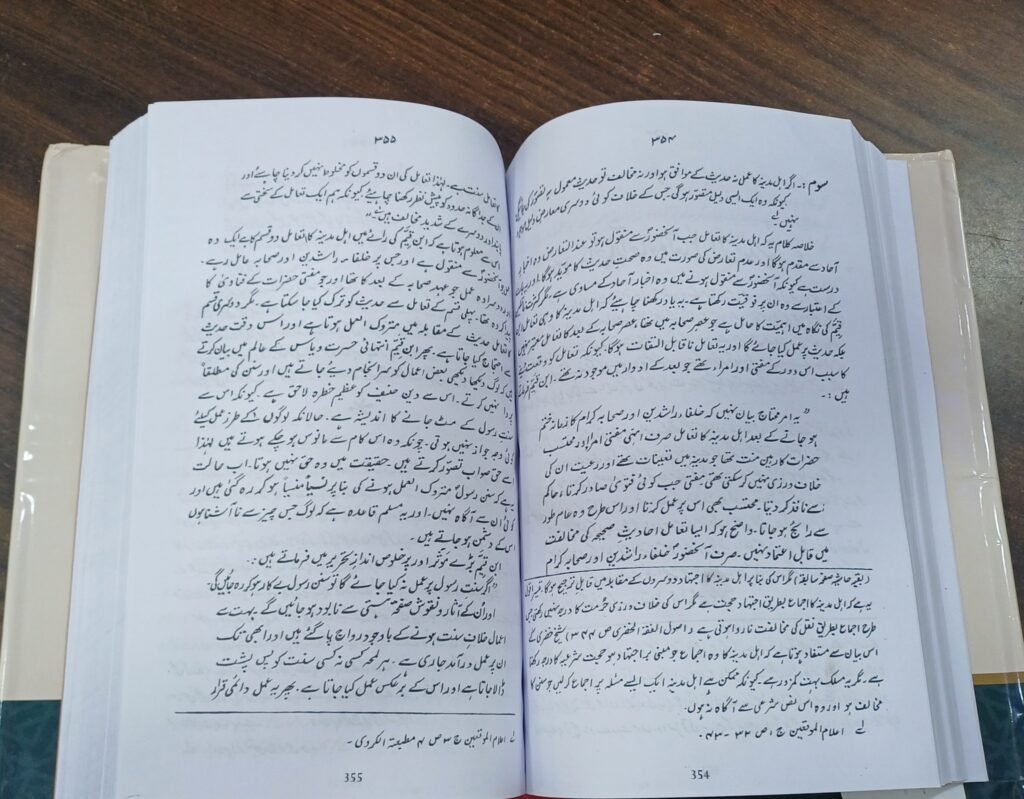 ۳۵۴
سوم :۔ اگر اہل مدینہ کا عمل نہ حدیث کے موافق ہو اور نہ مخالف تو حدیث معمول بہ تصور کی جائے گی
کیونکہ وہ ایک ایسی دلیل متصور ہوگی جس کے خلاف کوئی دوسری معارض دلیل
نہیں لے
خلاصہ کلام یہ کہ اہل مدینہ کا تعامل جب آنحضورؐ سے منقول ہو تو عند التعارض وہ اخبار
آحاد سے مقدم ہوگا اور عدم تعارض کی صورت میں وہ صحت حدیث کا مؤید ہوگا، اور یہ بات
درست ہے کیونکہ آنحضورؐ سے منقول ہونے میں وہ اخبار آحاد کے مساوی ہے، مگر کثرت
کے اعتبار سے وہ ان پر فوقیت رکھتا ہے۔ یہ یاد رکھنا چاہیے کہ اہل مدینہ کا وہی تعامل ابن
قیمؒ کی نگاہ میں اہمیت کا حامل ہے جو عصر صحابہ میں تھا، عصر صحابہ کے بعد کا تعامل معتبر نہیں
بلکہ حدیث پر عمل کیا جائے گا اور یہ تعامل ناقابل التفات ہوگا۔ کیونکہ تعامل کو وقعت دینے
کا سبب اس دور کے مفتی اور امراء تھے جو بعد کے ادوار میں موجود نہ تھے۔ ابن قیمؒ فرماتے
ہیں :۔
” یہ امر محتاج بیان نہیں کہ خلفاء راشدین اور صحابہ کرام کا زمانہ ختم
ہو جانے کے بعد اہل مدینہ کا تعامل صرف انہی مفتی امراء اور محتسب
حضرات کا رہین منت تھا جو مدینہ میں تعینات تھے اور رعیت ان کی
خلاف ورزی نہیں کر سکتی تھی مفتی جب کوئی فتویٰ صادر کرتا، حاکم
اسے نافذ کر دیتا۔ محتسب بھی اس پر عمل کرتا اور اس طرح وہ عام طور
سے رائج ہو جاتا۔ واضح ہو کہ ایسا تعامل احادیث صحیحہ کی مخالفت
میں قابل اعتماد نہیں۔ صرف آنحضورؐ خلفاء راشدین اور صحابہ کرام
(بقیہ حاشیہ صفحہ سابقہ) مگر اس کی بنا پر اہل مدینہ کا اجتہاد دوسروں کے مقابلہ میں قابل ترجیح ہوگا،
یہ ہے کہ اہل مدینہ کا اجماع بطریق اجتہاد حجت ہے مگر اس کی خلاف ورزی حرمت کا درجہ نہیں رکھتی جس
طرح اجماع بطریق نقل کی مخالفت ناروا ہوتی ہے (اصول الفقہ الخضری ص ۳۴۴) شیخ خضری کے
اس بیان سے مستفاد ہوتا ہے کہ اہل مدینہ کا وہ اجماع جو مبنی بر اجتہاد ہو حجیت شرعیہ کا درجہ رکھتا
ہے۔ مگر یہ مسلک بہت کمزور ہے۔ کیونکہ ممکن ہے اہل مدینہ ایک ایسے مسئلہ پر اجماع کر لیں جو سنت کا
مخالف ہو اور وہ اس نص شرعی سے آگاہ نہ ہوں۔
لے اعلام الموقعین ج ۱ ص ۳۲ - ۴۳۔
354
۳۵۵
کا تعامل سنت ہے۔ لہٰذا تعامل کی ان دو قسموں کو مخلوط نہیں کر دینا چاہئے اور
ان کے جداگانہ حدود کو پیش نظر رکھنا چاہیے کیونکہ ہم ایک تعامل کے سختی سے
پابند اور دوسرے کے شدید مخالف ہیں لے“
اس سے معلوم ہوتا ہے کہ ابن قیمؒ کی رائے میں اہل مدینہ کا تعامل دو قسم کا ہے ایک وہ
جو آنحضورؐ سے منقول ہے اور جس پر خلفاء راشدین اور صحابہ عامل رہے۔
اور دوسرا وہ عمل جو عہد صحابہ کے بعد کا تھا اور جو مفتی حضرات کے فتاویٰ کا
پیدا کردہ تھا۔ پہلی قسم کے تعامل سے حدیث کو ترک کیا جا سکتا ہے۔ مگر دوسری قسم
کا تعامل حدیث کے مقابلہ میں متروک العمل ہوتا ہے اور اس وقت حدیث
سے احتجاج کیا جاتا ہے۔ پھر ابن قیمؒ انتہائی حسرت و یاس کے عالم میں بیان کرتے
ہیں کہ لوگ دیکھا دیکھی بعض اعمال کو سرانجام دیئے جاتے ہیں اور سنن کی مطلقاً
پروا نہیں کرتے۔ اس سے دین حنیف کو عظیم خطرہ لاحق ہے۔ کیونکہ اس سے
سنت رسول کے مٹ جانے کا اندیشہ ہے۔ حالانکہ لوگوں کے طرز عمل کیلئے
کوئی وجہ جواز نہیں ہوتی۔ چونکہ وہ اس کام سے مانوس ہو چکے ہوتے ہیں لہٰذا
اسے حق صواب تصور کرتے ہیں۔ حقیقت میں وہ حق نہیں ہوتا۔ اب حالت
یہ ہے کہ سنن رسولؐ متروک العمل ہونے کی بنا پر نسیاً منسیاً ہو کر رہ گئی ہیں اور
کوئی ان سے آگاہ نہیں۔ اور یہ مسلم قاعدہ ہے کہ لوگ جس چیز سے ناآشنا ہوں
اس کے دشمن ہو جاتے ہیں۔
ابن قیمؒ بڑے مؤثر اور پرخلوص انداز تحریر میں فرماتے ہیں۔
”اگر سنت رسول پر عمل نہ کیا جائے گا تو سنن رسول بے کار ہو کر رہ جائیں گی۔
اور اُن کے آثار و نقوش صفحۂ ہستی سے نابود ہو جائیں گے بہت سے
اعمال خلاف سنت ہونے کے باوجود رواج پا گئے ہیں اور ابھی تک
ان پر عمل درآمد جاری ہے۔ ہر لمحہ کسی نہ کسی سنت کو پس پشت
ڈالا جاتا ہے اور اس کے برعکس عمل کیا جاتا ہے۔ پھر یہ عمل دائمی قرار
لے اعلام الموقعین ج ۳ ص ۴ مطبعۃ الکردی۔
355